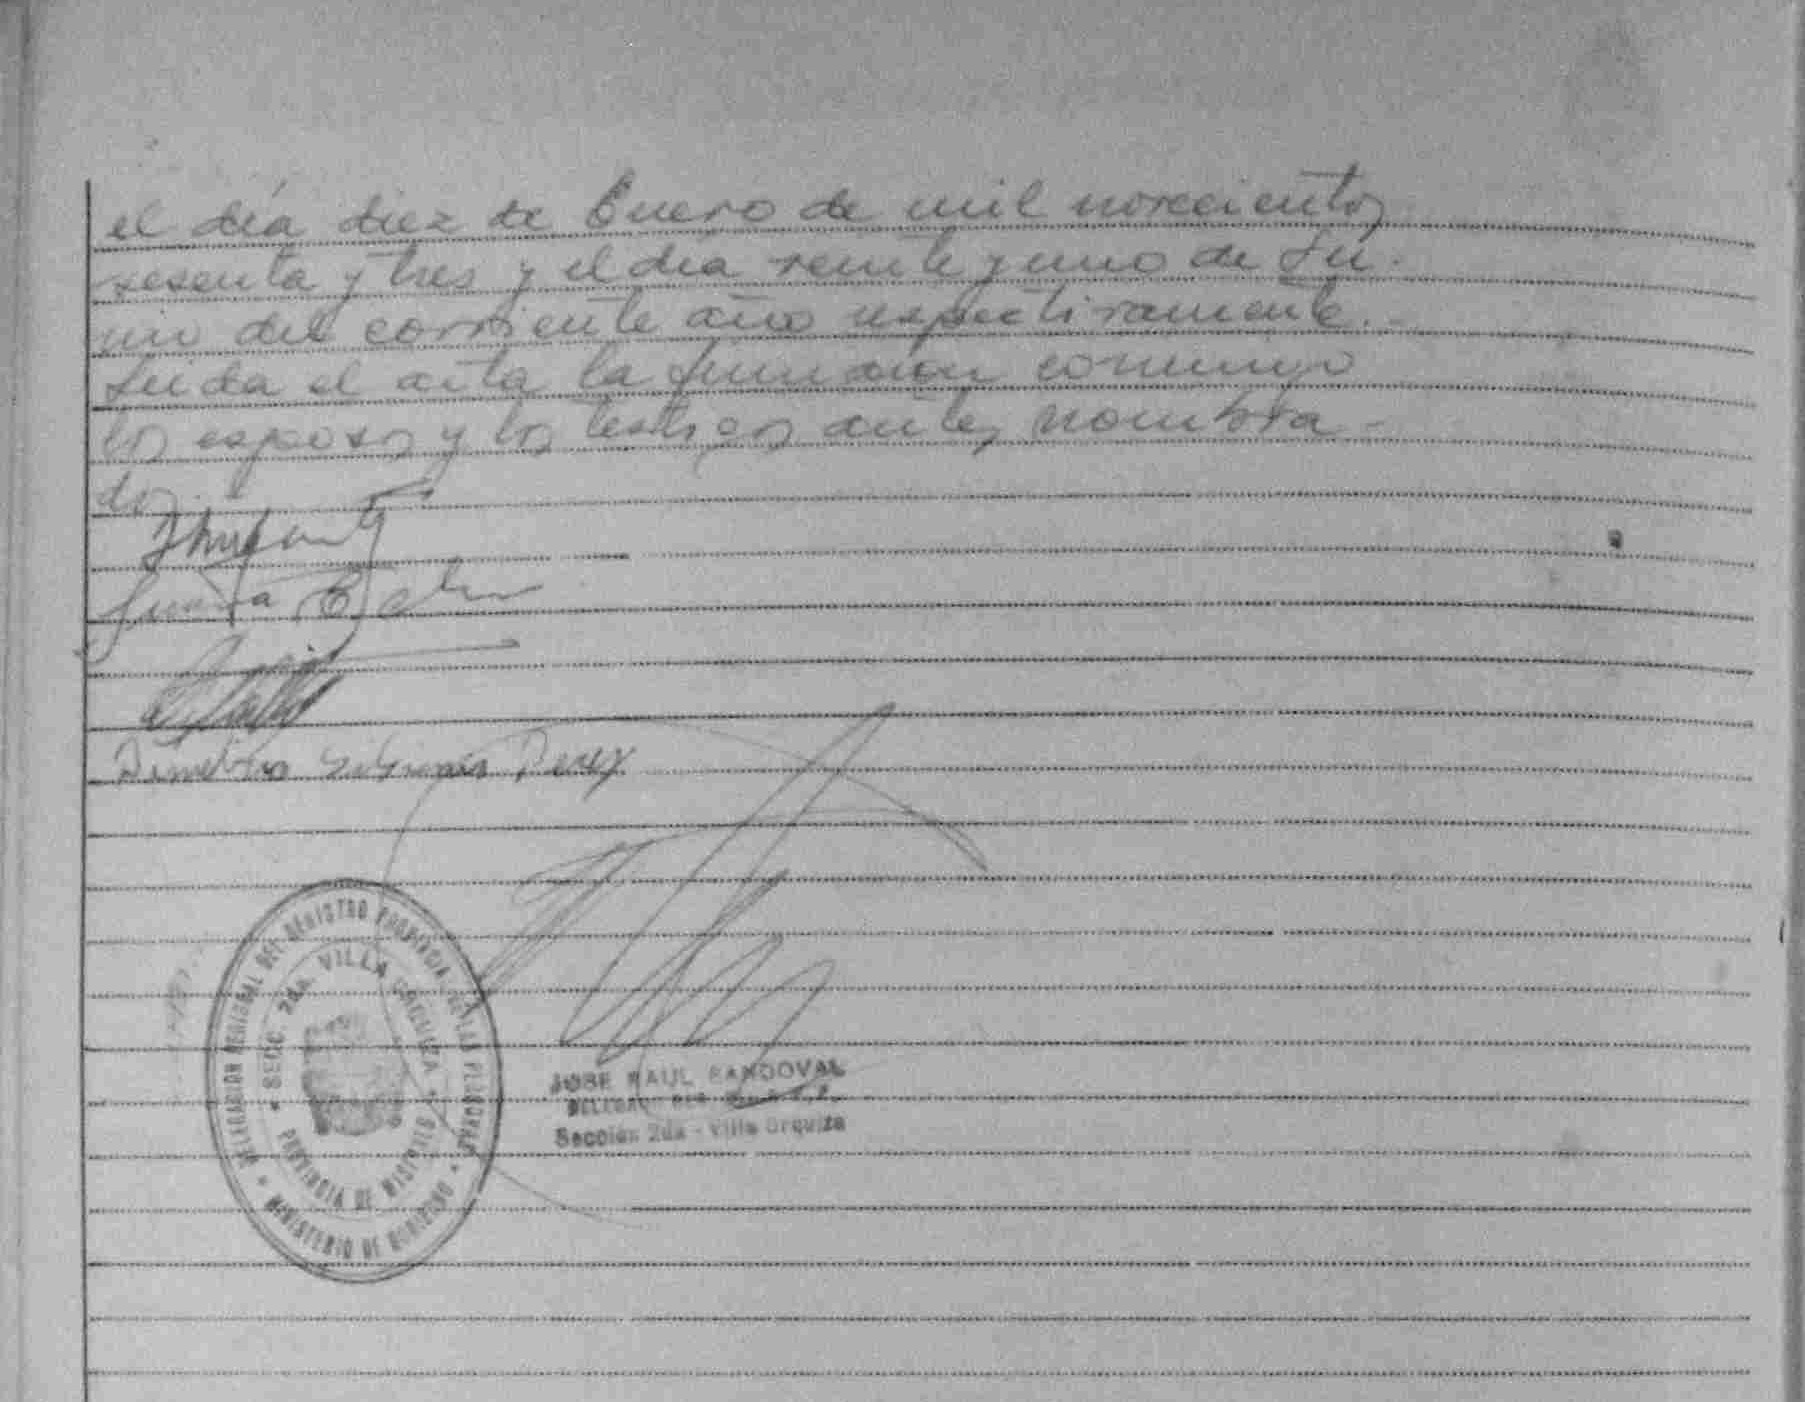 el día diez de Enero de mil novecientos
sesenta y tres y el día veinte y uno de Ju-
nio del corriente año respectivamente.-
Leida el acta la firman conmigo
los esposos y los testigos antes nombra-
dos.
Perez
DELEGACION REGIONAL DEL REGISTRO PROVINCIAL DE LAS PERSONAS
* MINISTERIO DE GOBIERNO *
* SECC. 2da. VILLA URQUIZA *
PROVINCIA DE MISIONES
JOSE RAUL SANDOVAL
Sección 2da - Villa Urquiza